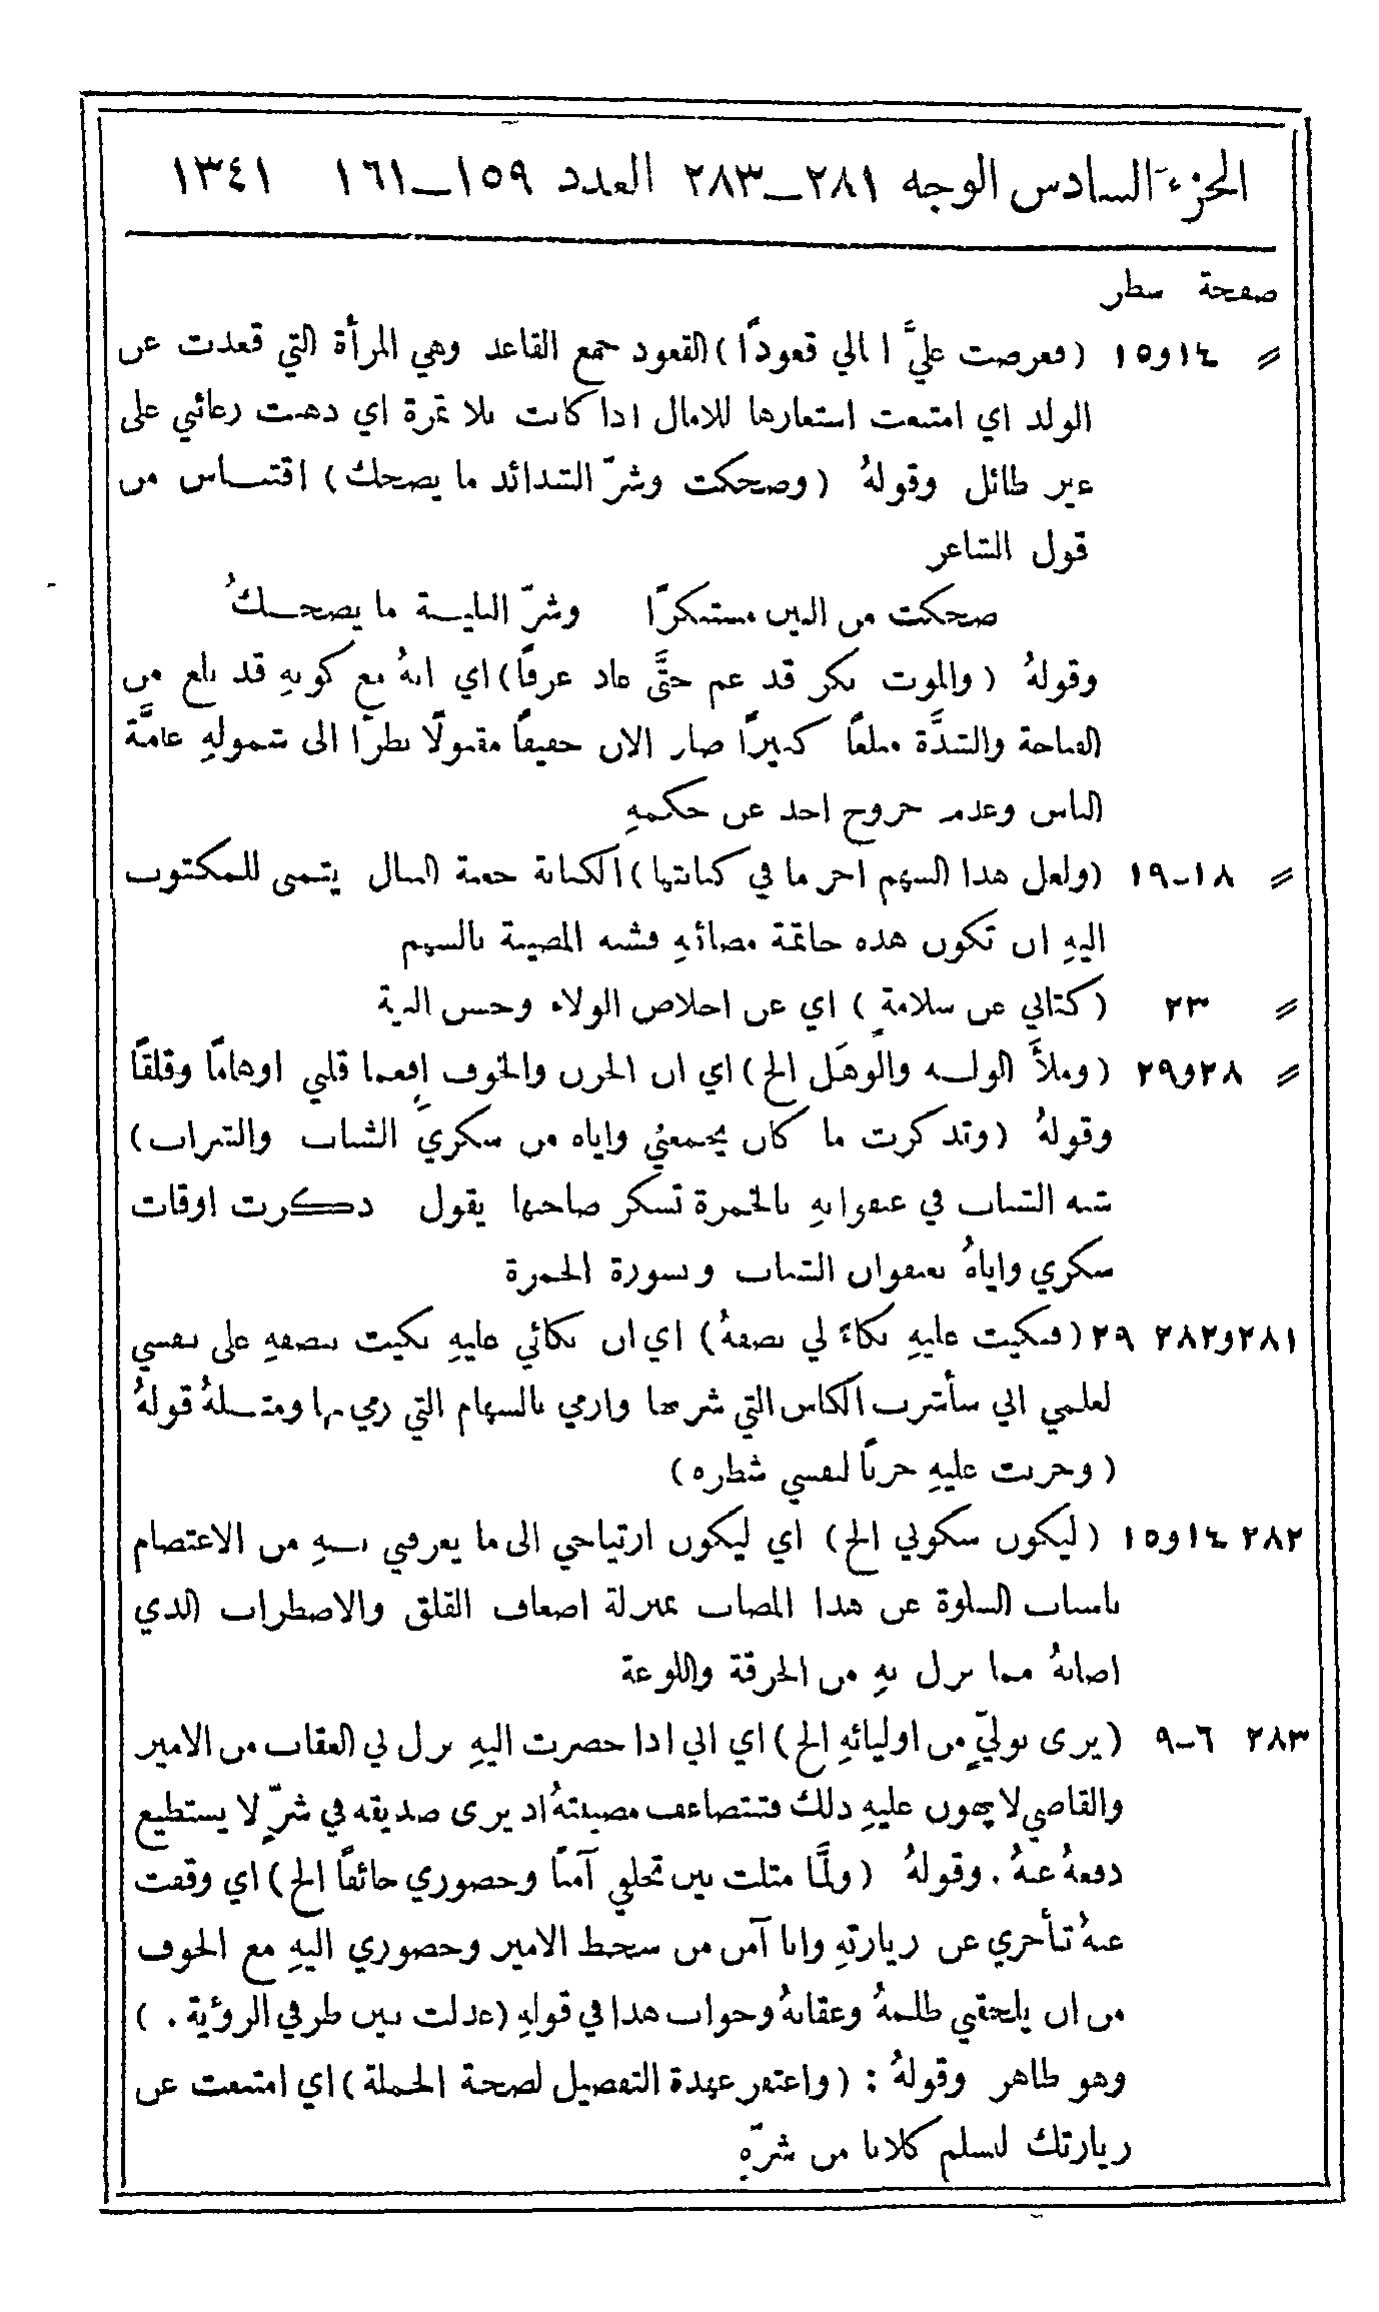 الجزء السادس الوجه ٢٨١ــ٢٨٣ العدد ١٥٩ــ١٦١ ١٣٤١
صفحة سطر
〃 ١٤و١٥ (فعرضت عليَّ امالي قعودًا) القعود جمع القاعد وهي المرأة التي قعدت عن
الولد اي امتنعت استعارها للامال اذا كانت بلا ثمرة اي ذهبت رغائبي على
غير طائل وقولهُ (وضحكت وشرّ الشدائد ما يضحك) اقتباس من
قول الشاعر
ضحكت من البين مستنكرًا وشرّ البلية ما يضحكُ
وقولهُ (والموت نكر قد عم حتَّى عاد عرفًا) اي انهُ مع كونهِ قد بلغ من
القباحة والشدَّة مبلغًا كبيرًا صار الان خفيفًا مقبولًا نظرًا الى شمولهِ عامَّة
الناس وعدم خروج احد عن حكمهِ
〃 ١٨ــ١٩ (ولعل هذا السهم اخر ما في كنانتها) الكنانة جعبة النبال يتمنى للمكتوب
اليهِ ان تكون هذه خاتمة مصائبهِ فشبه المصيبة بالسهم
〃 ٢٣ (كتابي عن سلامةٍ) اي عن اخلاص الولاء وحسن النية
〃 ٢٨و٢٩ (وملأَ الوله والوَهَل الخ) اي ان الحزن والخوف افعما قلبي اوهامًا وقلقًا
وقولهُ (وتذكرت ما كان يجمعني واياه من سكريَ الشباب والشراب)
شبه الشباب في عنفوانهِ بالخمرة تسكر صاحبها يقول ذكرت اوقات
سكري واياهُ بعنفوان الشباب وبسورة الخمرة
٢٨١و٢٨٢ ٢٩ (فبكيت عليهِ بكاءً لي نصفهُ) اي ان بكائي عليهِ بكيت بنصفهِ على نفسي
لعلمي اني سأشرب الكاس التي شربها وارمي بالسهام التي رمي بها ومثلهُ قولهُ
(وحزنت عليهِ حزنًا لنفسي شطره)
٢٨٢ ١٤و١٥ (ليكون سكوني الخ) اي ليكون ارتياحي الى ما يعرفني بهِ من الاعتصام
باسباب السلوة عن هذا المصاب بمنزلة اضعاف القلق والاضطراب الذي
اصابهُ مما نزل بهِ من الحرقة واللوعة
٢٨٣ ٦ــ٩ (يرى بوليٍّ من اوليائهِ الخ) اي اني اذا حضرت اليهِ نزل لي العقاب من الامير
والقاضي لا يهون عليهِ ذلك فتتضاعف مصيبتهُ اذ يرى صديقه في شرٍّ لا يستطيع
دفعهُ عنهُ. وقولهُ (ولمَّا مثلت بين تخلفي آمنًا وحضوري خائفًا الخ) اي وقفت
عنهُ تأخري عن زيارتهِ وانا آمن من سخط الامير وحضوري اليهِ مع الخوف
من ان يلحقني ظلمهُ وعقابهُ وجواب هذا في قولهِ (عدلت بين طرفي الرؤية.)
وهو ظاهر وقولهُ: (واغتفر عهدة التفصيل لصحة الجملة) اي امتنعت عن
زيارتك لنسلم كلانا من شرّهِ